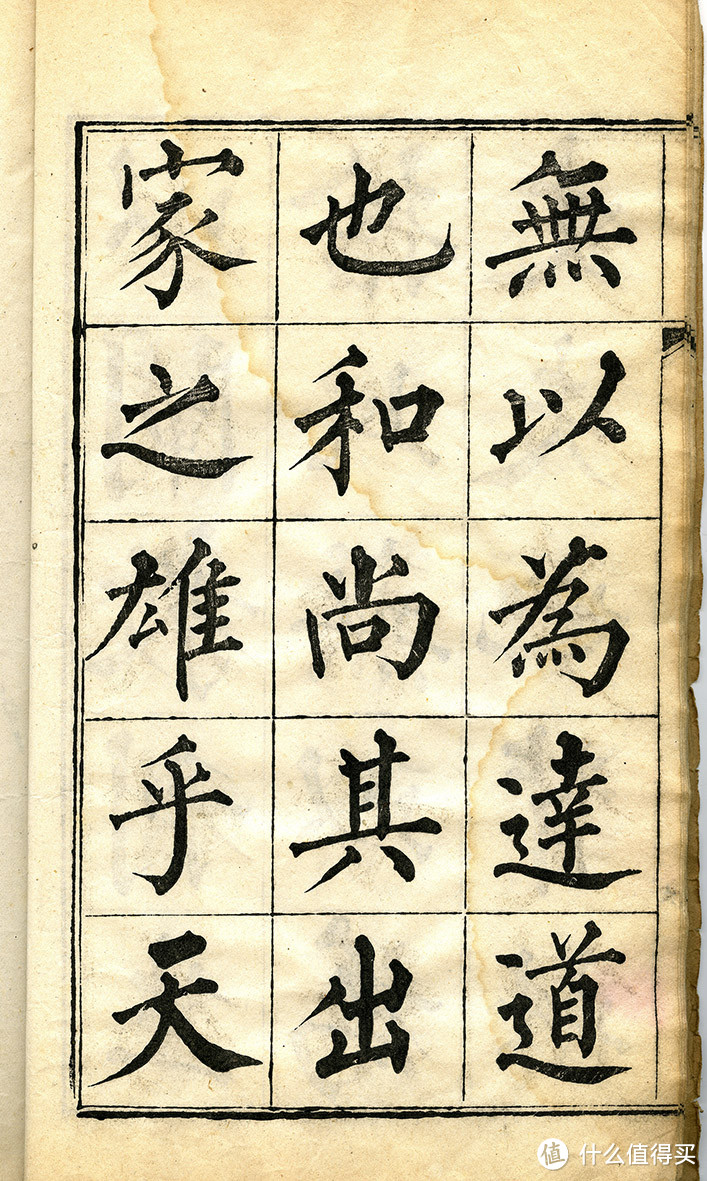 無以為達道
也和尚其出
家之雄乎天
值 什么值得买